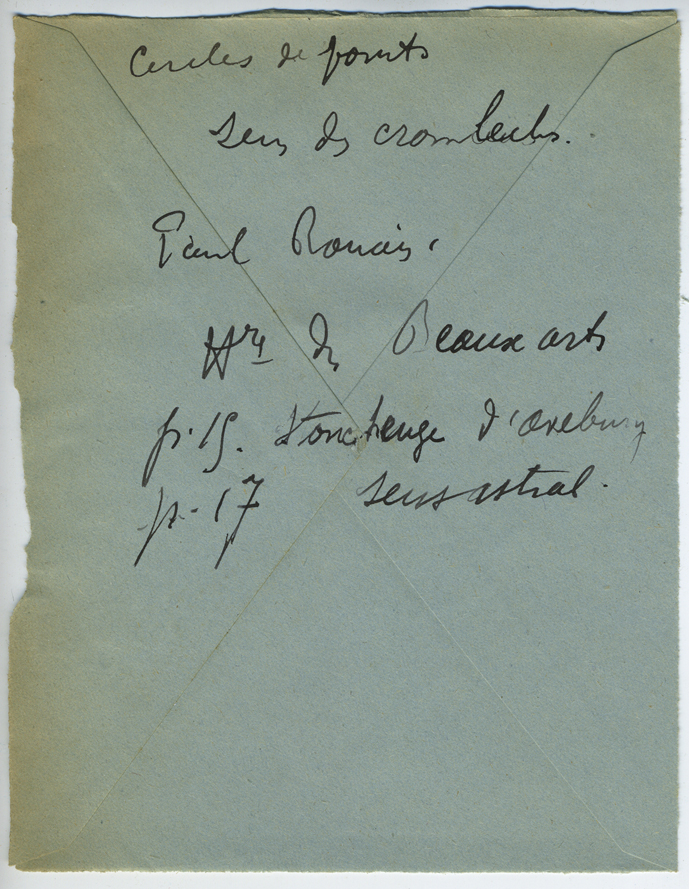 Cercles de points
sens des cromlechs.
Paul Rouaix.
Hre des Beaux arts
p. 15. Stonehenge d'avebury
p. 17 sens astral.